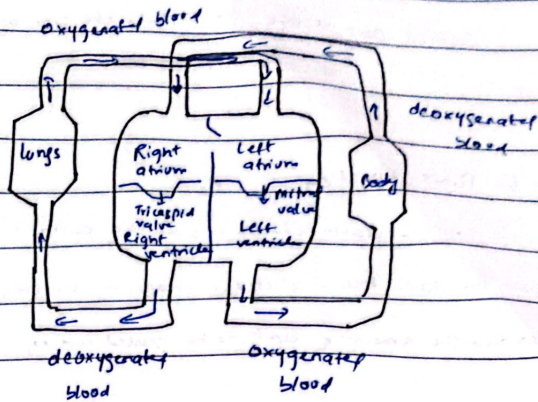 oxygenated blood
deoxygenated
blood
Lungs
Right
atrium
Left
atrium
Body
Tricuspid
valve
Mitral
valve
Right
ventricle
Left
ventricle
deoxygenated
blood
oxygenated
blood